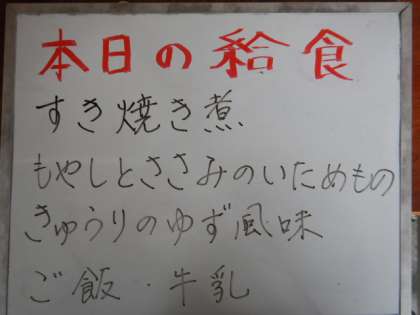 本日の給食
すき焼き煮
もやしとささみのいためもの
きゅうりのゆず風味
ご飯・牛乳